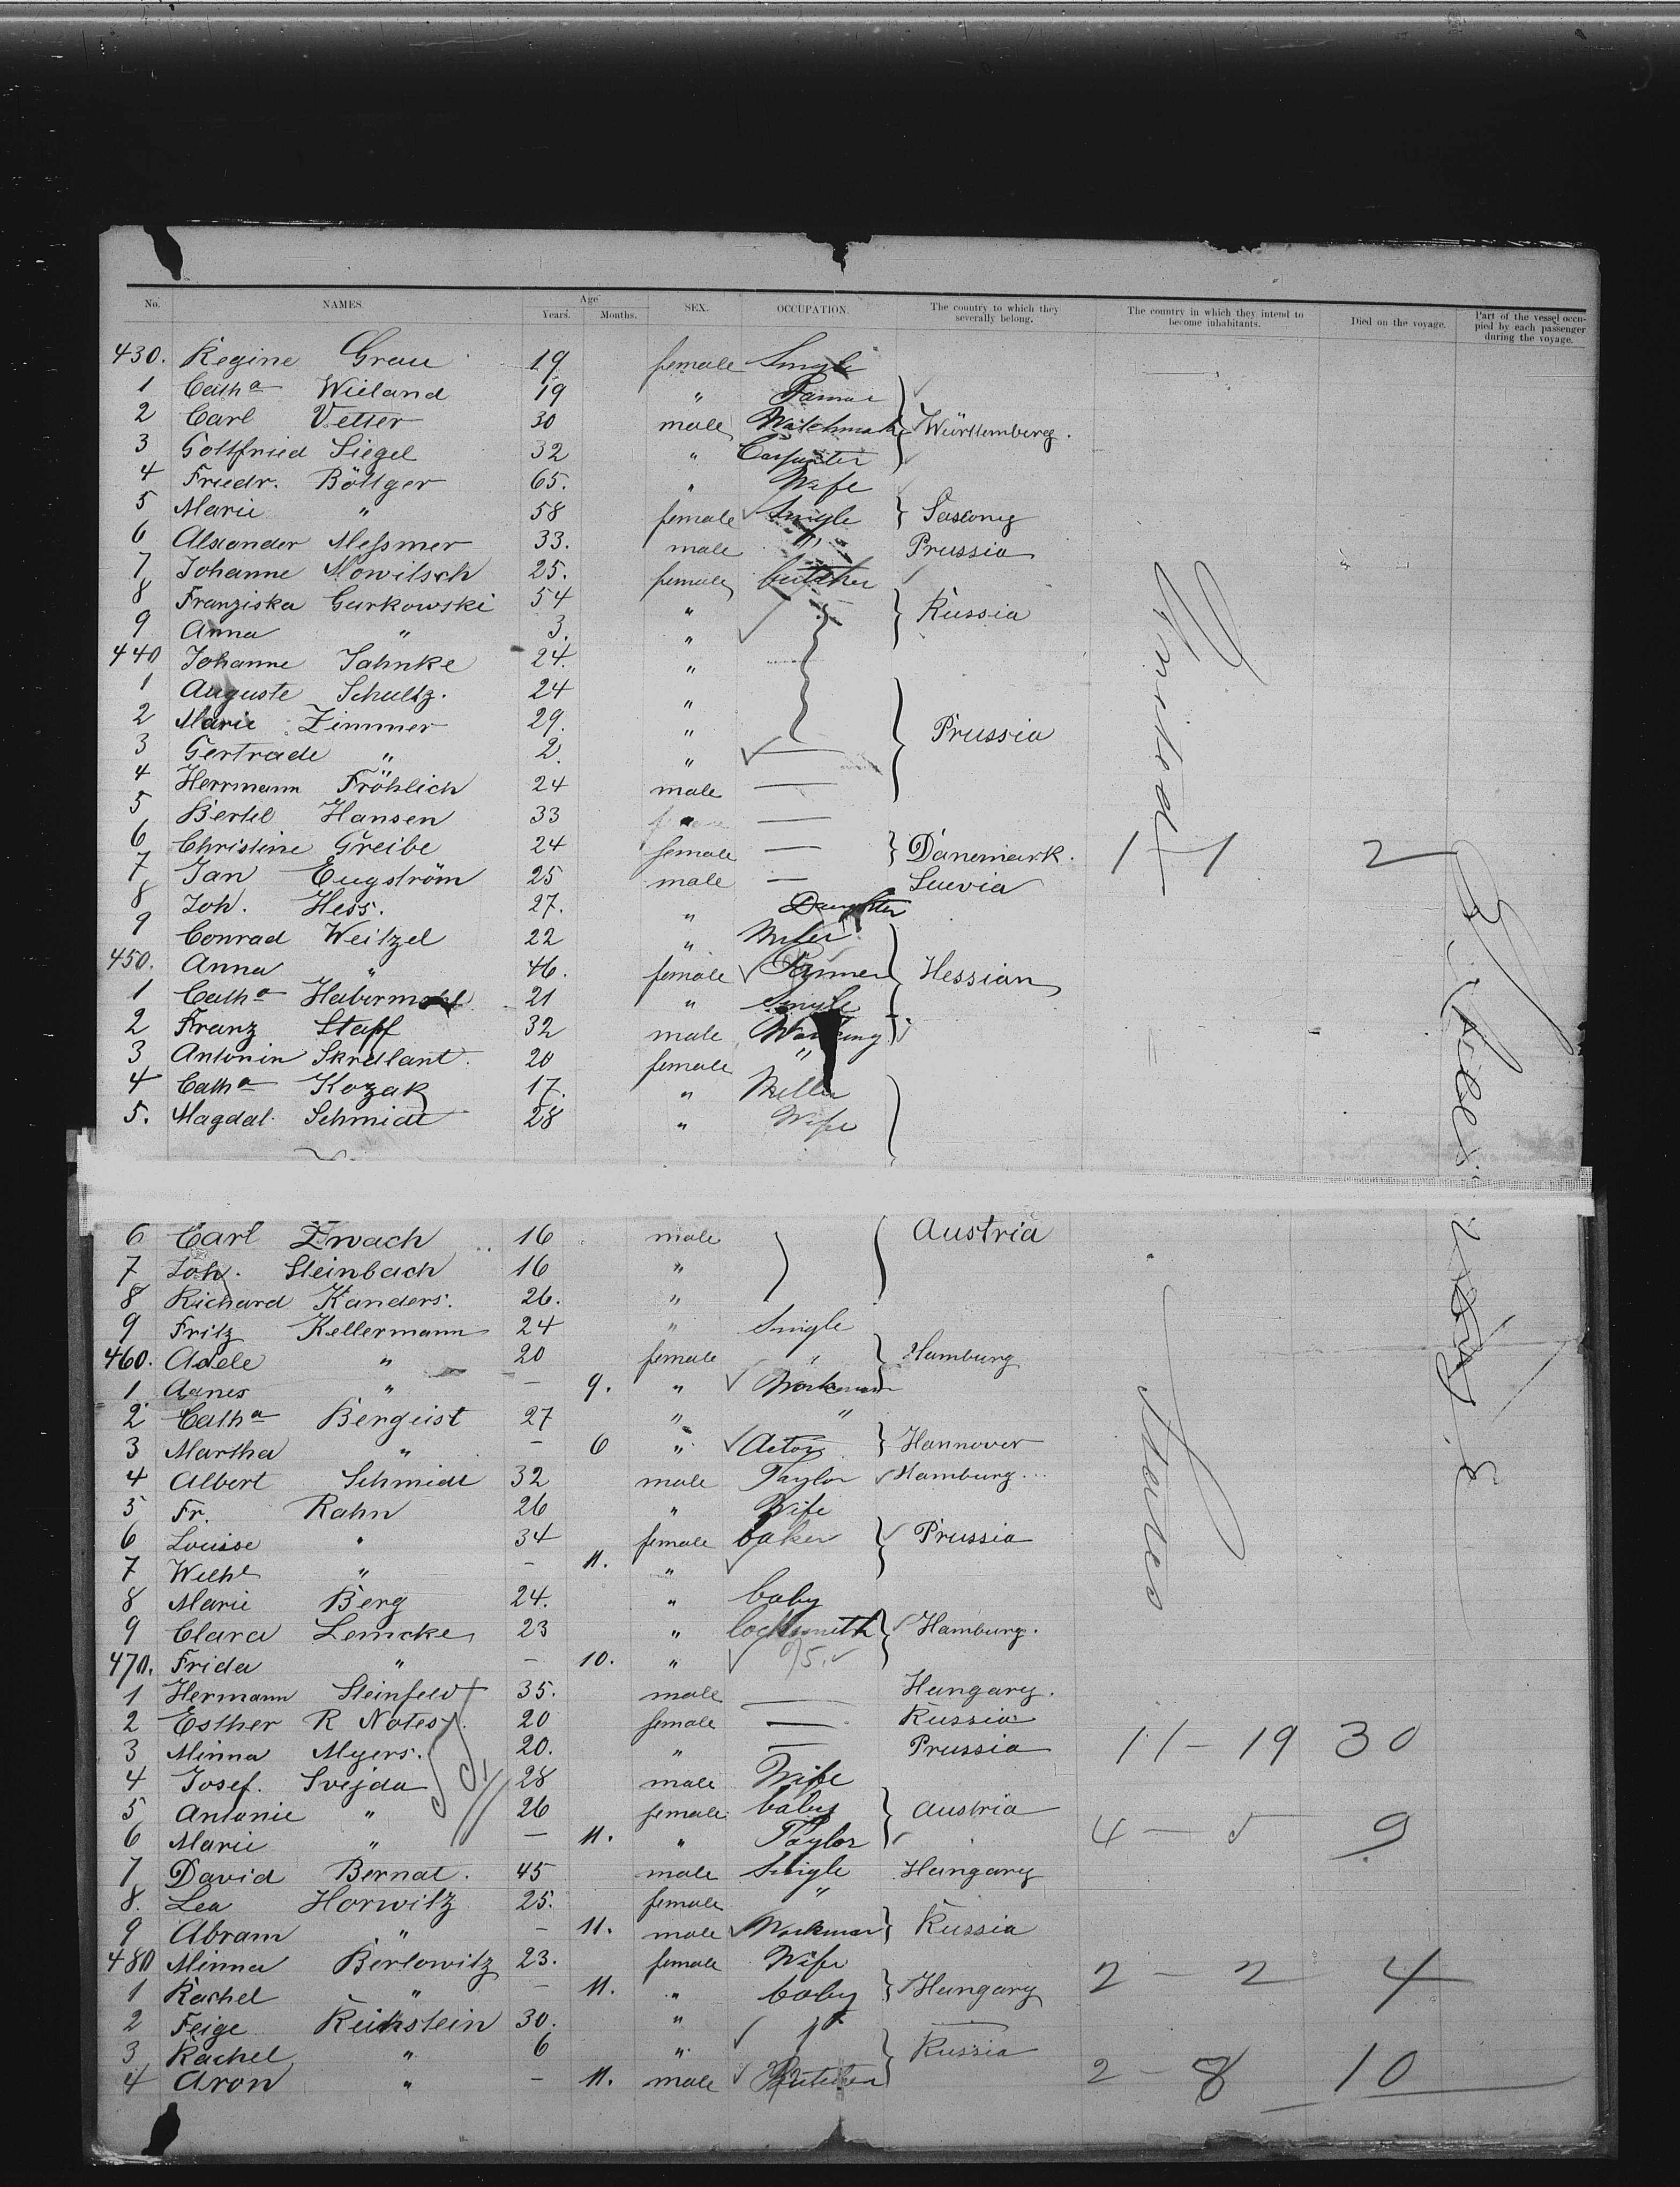 No. NAMES Age Years. Months. SEX. OCCUPATION. The country to which they severally belong. The country in which they intend to become inhabitants. Died on the voyage. Part of the vessel occupied by each passenger during the voyage.
430. Regine Grau 19 female Single
1 Catha Wieland 19 " Farmer
2 Carl Vetter 30 male Watchmak Württemberg.
3 Gottfried Siegel 32 " Carpenter
4 Friedr. Böttger 65. " Wife
5 Marie " 58 female Single Saxony
6 Alexander Messmer 33. male " Prussia
7 Johanne Mowitsch 25. female butcher
8 Franziska Gurkowski 54 " Russia
9 Anna " 3. "
440 Johanne Jahnke 24. "
1 Auguste Schultz. 24 "
2 Marie Zimmer 29. " Prussia
3 Gertrude " 2. " —
4 Herrmann Fröhlich 24 male —
5 Bertel Hansen 33 " —
6 Christine Greibe 24 female — Dänemark. 1 - 1 2
7 Jan Engström 25 male — Suevia
8 Joh. Hess. 27. " Daughter
9 Conrad Weitzel 22 "
450. Anna " 46. female Farmer Hessian
1 Catha Habermehl 21 " Single
2 Franz Stapf 32 male Working
3 Antonin Skrdlant. 20 female "
4 Catha Kozak 17. " Miller
5. Magdal. Schmidt 28 " Wife
United
6 Carl Zwach 16 male Austria
7 Joh. Steinbach 16 "
8 Richard Kanders. 26. "
9 Fritz Kellermann 24 " Single
460. Adele " 20 female " Hamburg
1 Agnes " — 9. " Workman
2 Catha Bergeist 27 " "
3 Martha " — 6 " Actor Hannover
4 Albert Schmidt 32 male Taylor Hamburg
5 Fr. Rahn 26 " Wife
6 Louise " 34 female baker Prussia
7 Wilhl " — 11. "
8 Marie Berg 24. " baby
9 Clara Lemcke 23 " locksmith Hamburg.
470. Frida " — 10. "
1 Hermann Steinfeld 35. male — Hungary.
2 Esther R Notes 20 female — Russia
3 Minna Myers. 20. " — Prussia 11 - 19 30
4 Josef. Svejda 28 male Wife
5 Antonie " 26 female baby Austria
6 Marie " — 11. " Taylor 4 - 5 9
7 David Bernat. 45 male Single Hungary
8. Lea Horwitz 25. female "
9 Abram " — 11. male Workman Russia
480 Minna Berlowitz 23. female Wife
1 Rachel " — 11. " baby Hungary 2 - 2 4
2 Feige Reinstein 30. "
3 Rachel " 6 " Russia
4 Aron " — 11. male Butcher 2 - 8 10
States